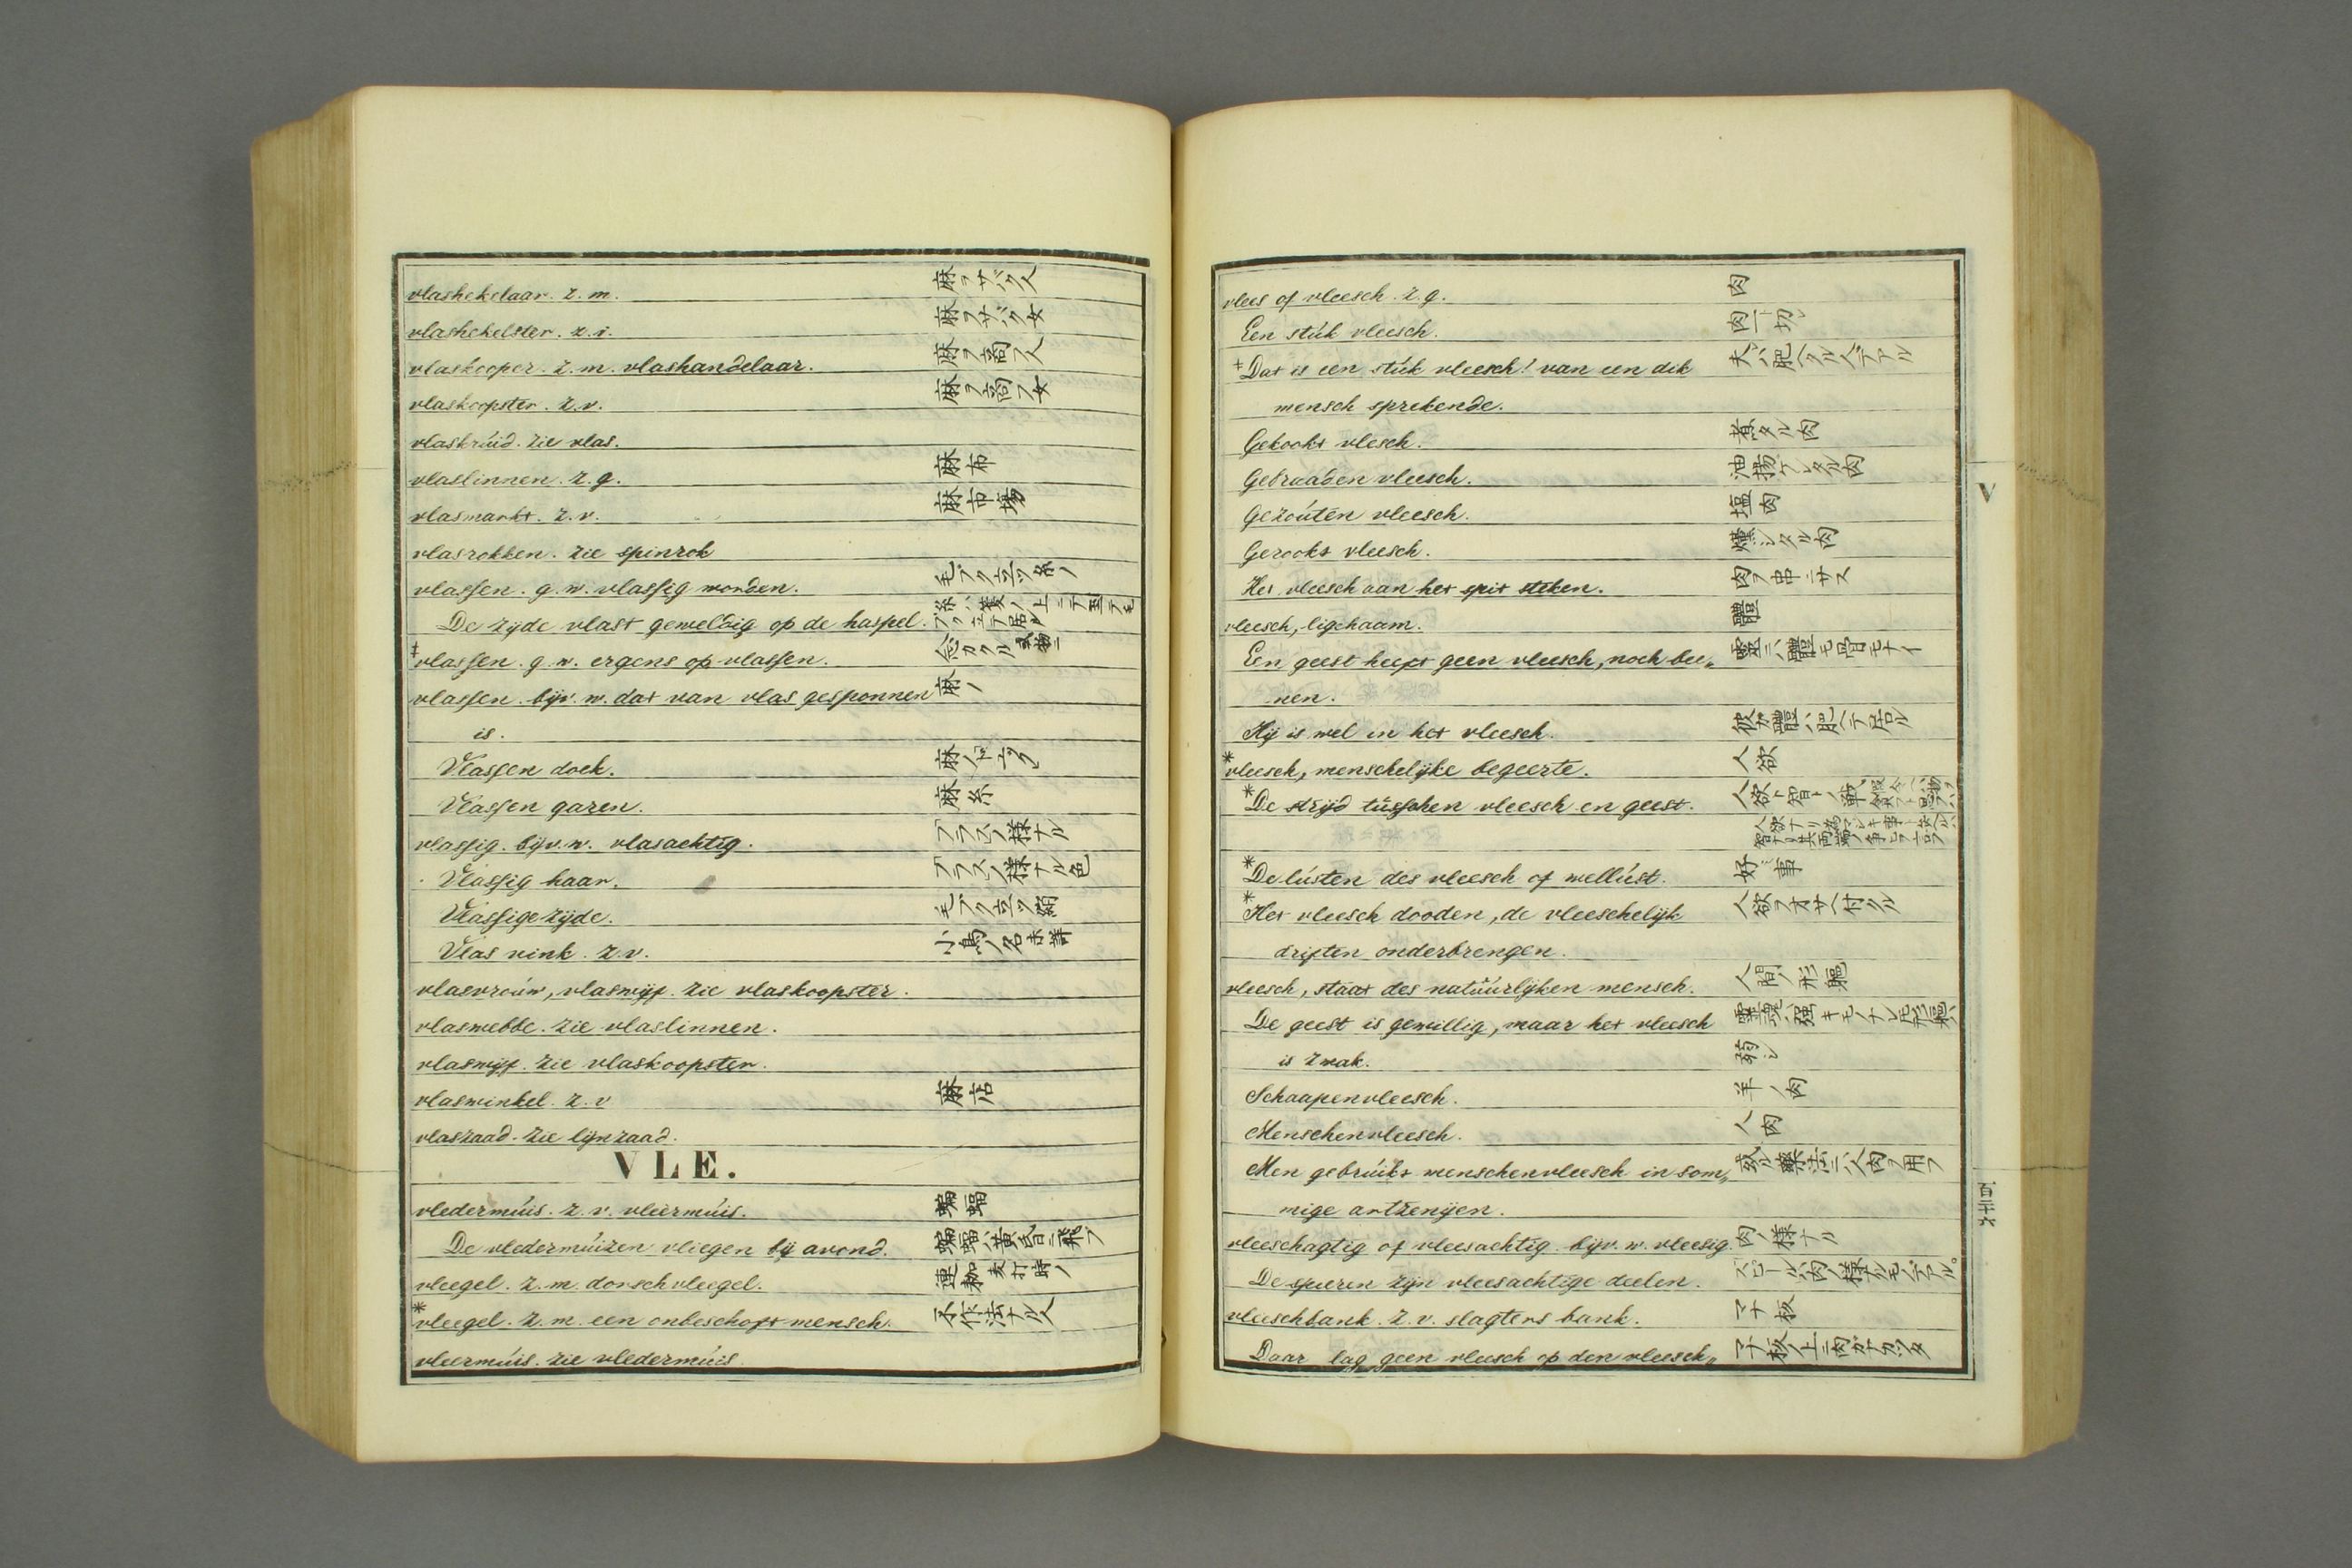 vlashekelaar. z.m. 麻ヲサバク人
vlashekelster. z.v. 麻ヲサバク女
vlaskooper. z.m. vlashandelaar. 麻ヲ商フ人
vlaskoopster. z.v. 麻ヲ商フ女
vlaskrúid. zie vlas.
vlaslinnen. z.g. 麻布
vlasmarkt. z.v. 麻市場
vlasrokken. zie spinrok
vlassen. g.w. vlassig worden. 毛ブク立ツ
De zijde vlast geweldig op de haspel.
‡vlassen. g.w. ergens op vlassen. 念カクル
vlassen. bijv. w. dat van vlas gesponnen 麻ノ
is.
Vlassen doek. 麻ノ
Vlassen garen. 麻糸
vlassig. bijv. w. vlasachtig. 「フラスノ様ナル
Vlassig haar. 「フラスノ様ナル色
Vlassige zijde. 毛ブク立ツ絹
Vlas vink. z.v. 小鳥ノ名未詳
vlasvroúw, vlaswijf. zie vlaskoopster.
vlaswebbe. zie vlaslinnen.
vlaswijf. zie vlaskoopster.
vlaswinkel. z.v 麻店
vlaszaad. zie lijnzaad.
VLE.
vledermúis. z.v. vleermúis. 蝙蝠
De vledermúizen vliegen bij avond. 蝙蝠ハ黄昏ニ飛ブ
vleegel. z.m. dorschvleegel. 連枷 麦打時ノ
*vleegel. z.m. een onbeschoft mensch. 不作法ナル人
vleermúis. zie vledermúis.
vlees of vleesch. z.g. 肉
Een stúk vleesch. 肉一切
‡Dat is een stúk vleesch! van een dik 夫ハ肥ヘタル人デアル
mensch sprekende.
Gekookt vlesch. 煮タル肉
Gebraaden vleesch. 油揚ケシタル肉
Gezoúten vleesch. 塩肉
Gerookt vleesch. 燻シタル肉
Het vleesch aan het spit steken. 肉ヲ串ニサス
vleesch, ligchaam. 體
Een geest heeft geen vleesch, noch bee„ 靈ニハ體モ骨モナイ
nen.
Hij is wel in het vleesch. 彼ガ體ハ肥ヘテ居ル
*vleesch, menschelijke begeerte. 人欲
*De strijd tússchen vleesch en geest. 人欲ト智トノ戦
*De lústen des vleesch of wellúst. 好事
*Het vleesch dooden, de vleeschelijk 人欲ヲオサヘ付クル
driften onderbrengen.
vleesch, staat des natúúrlijken mensch. 人間ノ形軀
De geest is gewillig, maar het vleesch 靈魂ハ強キモノナレ𪜈形軀ハ
is zwak. 弱シ
Schaapenvleesch. 羊ノ肉
Menschenvleesch. 人肉
Men gebrúikt menschenvleesch in som„ 或ル藥法ニハ人肉ヲ用フ
mige artzenijen.
vleeschagtig of vleesachtig. bijv. w. vleesig. 肉ノ様ナル
De spieren zijn vleesachtige deelen. 「スピールハ肉ノ様ナルモノデアル。
vleeschbank. z.v. slagters bank. マナ板
Daar lag geen vleesch op den vleesch„ マナ板ノ上ニ肉ガナカツタ
V